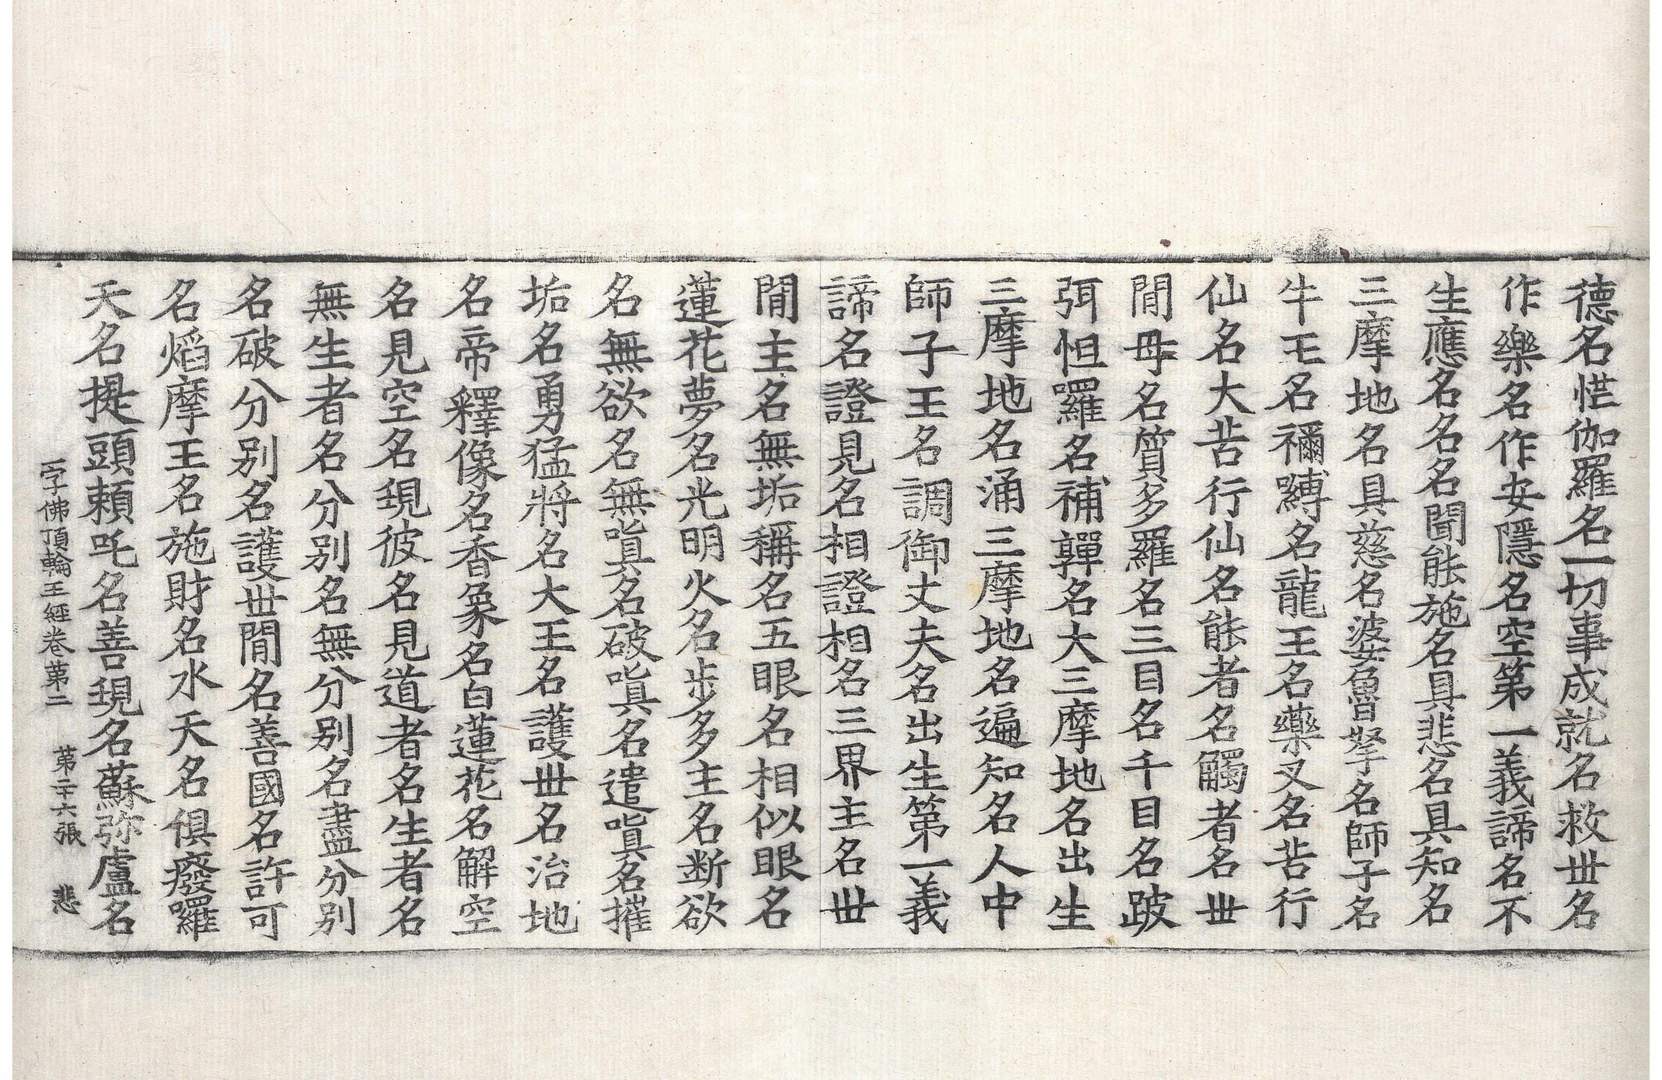 德名恾伽羅名一切事成就名救世名
作樂名作安隱名空第一義諦名不
生應名名名聞能施名具悲名具知名
三摩地名具慈名婆魯拏名師子名
牛王名禰嚩名龍王名藥叉名苦行
仙名大苦行仙名能者名觸者名世
閒母名質多羅名三目名千目名跛
弭怛囉名補鞞名大三摩地名出生
三摩地名涌三摩地名遍知名人中
師子王名調御丈夫名出生第一義
諦名證見名相證相名三界主名世
閒主名無垢稱名五眼名相似眼名
蓮花夢名光明火名步多主名断欲
名無欲名無嗔名破嗔名遣嗔名摧
垢名勇猛將名大王名護世名治地
名帝釋像名香象名白蓮花名解空
名見空名現彼名見道者名生者名
無生者名分別名無分別名盡分別
名破分別名護世閒名善國名許可
名焰摩王名施財名水天名俱廢囉
天名提頭賴吒名善現名蘇弥盧名
一字佛頂輪王經卷第二 第二十六張 悲